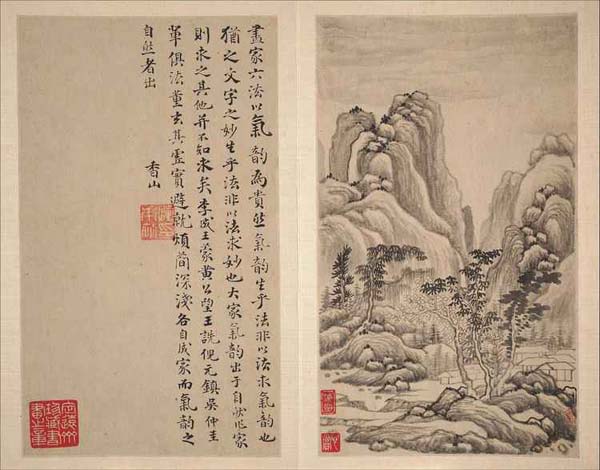 畫家六法以氣韵為貴然氣韵生乎法非以法求氣韵也
猶之文字之妙生乎法非以法求妙也大家氣韵出于自然作家
則求之其他并不知求矣李成王蒙黃公望王詵倪元鎮吳仲圭
輩俱法董玄其虛實避就煩簡深淺各自成家而氣韵之
自然者出
香山